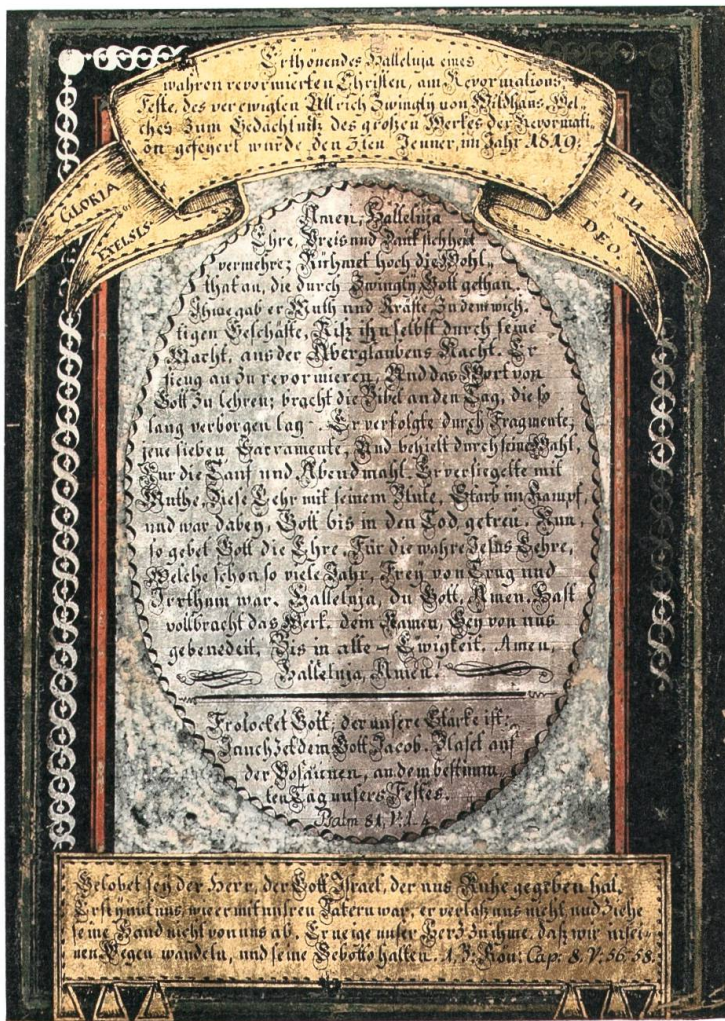 Erthönendes Halleluja eines
wahren revormierten Christen, am Revormations„
Feste, des verewigten Ullrich Zwingly von Wildhaus, Wel„
ches Zum Gedächtnitz des großen Werkes der Revormati„
on gefeyert wurde den 3ten Jenner, im Jahr 1819.
GLORIA
EXELSIS
IN
DEO.
Amen, Halleluja
Ehre, Preis und Dank sich heut
vermehre; Rühmet hoch die Wohl„
that an, die durch Zwingly Gott gethan.
Ihme gab er Muth und Kräfte, Zu dem wich„
tigen Geschäfte, Riß ihn selbst durch seine
Macht, aus der Aberglaubens Nacht. Er
fieng an zu revormieren, Und das Wort von
Gott Zu lehren; bracht die Bibel an den Tag, die so
lang verborgen lag. Er verfolgte durch Fragmente,
jene sieben Sacramente, Und behielt durch seine Wahl,
Nur die Tauf und Abendmahl. Er versiegelte mit
Muthe, Diese Lehr mit seinem Blute, Starb im Kampf,
und war dabey, Gott bis in den Tod getreu. Nun,
so gebet Gott die Ehre, Für die wahre Jesus Lehre,
Welche schon so viele Jahr, Frey von Trug und
Irrthum war. Halleluja, du Gott, Amen. Hast
vollbracht das Werk. dein Namen, Sey von uns
gebenedeit, Bis in alle - Ewigkeit. Amen,
Halleluja, Amen!
Frolocket Gott; der unsere Stärke ist:
Jauchzet dem Gott Jacob. Blaset auf
der Posaunen, an dem bestimm„
ten Tag unsers Festes.
Psalm 81, V. 1. 4.
Gelobet sey der Herr, der Gott Israel, der uns Ruhe gegeben hat,
Er sey mit uns, wie er mit unsren Vätern war, er verlaß uns nicht, und Ziehe
seine Hand nicht von uns ab. Er neige unser Herz Zu ihme, daß wir in sei„
nen Wegen wandeln, und seine Gebotto halten. 1. B: Kön: Cap: 8. V: 56. 58.